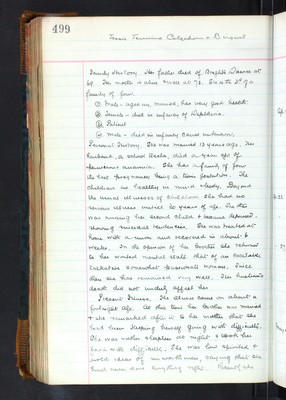 499
Family History. Her father died of Bright's Disease at
69. Her mother is alive & well at 73. She is the 3rd of a
family of four
① Male - aged , married, has very good health.
② Female - died in infancy of Diphtheria.
③ Patient
④ Male - died in infancy cause unknown.
Personal History. She was married 13 years ago. Her
husband, a school teacher, died a year ago of
pernicious anaemia. She has a family of four
its last pregnancy being a twin gestation. The
children are healthy in mind & body. Beyond
the usual illnesses of childhood she had no
serious illness until 20 years of age. She then
was nursing her second child & became depressed,
showing suicidal tendencies. She was treated at
home with a nurse and recovered in about 6
weeks. In the opinion of her brother she returned
to her wonted mental state that of an excitable
somewhat woman. Since
then she has remained very well. Her husband's
death did not unduly affect her.
Present Illness. The illness came on about a
fortnight ago. At this time her brother was married
& she remarked after it to her mother that she
had been keeping herself going with difficulty.
She was rather sleepless at night & took her
food with difficulty. She was low spirited &
ideas of unworthiness, saying that she
had never done anything right.